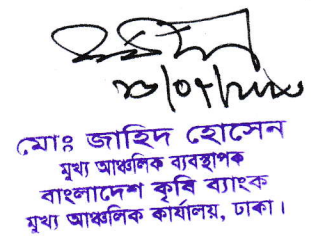 মোঃ জাহিদ হোসেন
মুখ্য আঞ্চলিক ব্যবস্থাপক
বাংলাদেশ কৃষি ব্যাংক
মুখ্য আঞ্চলিক কার্যালয়, ঢাকা।